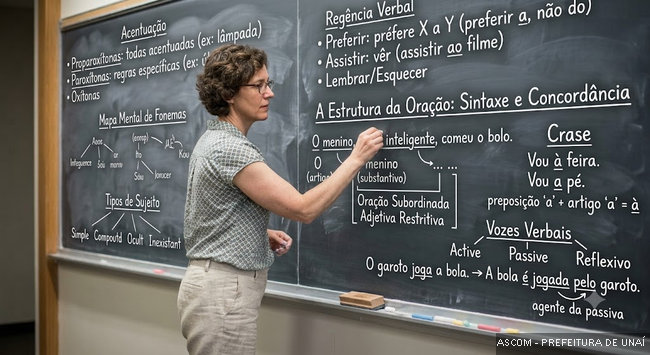 Acentuação
• Proparoxítonas: todas acentuadas (ex: lâmpada)
• Paroxítonas: regras específicas (ex:
• Oxítonas
Mapa Mental de Fonemas
Tipos de Sujeito
Simple Compoutd Ocult Inexistant
Regência Verbal
• Preferir: préfere X a Y (preferir a, não do)
• Assistir: vêr (assistir ao filme)
• Lembrar/Esquecer
A Estrutura da Oração: Sintaxe e Concordância
O menino, inteligente, comeu o bolo.
O menino ... ...
(artigo) (substantivo)
Oração Subordinada
Adjetiva Restritiva
Crase
Vou à feira.
Vou a pé.
preposição 'a' + artigo 'a' = à
Vozes Verbais
Active Passive Reflexivo
O garoto joga a bola. → A bola é jogada pelo garoto.
agente da passiva
ASCOM - PREFEITURA DE UNAÍ